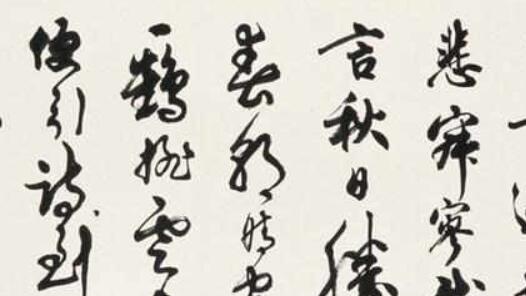 悲寂寥我
言秋日勝
春朝晴空
一鶴排雲
便引詩到